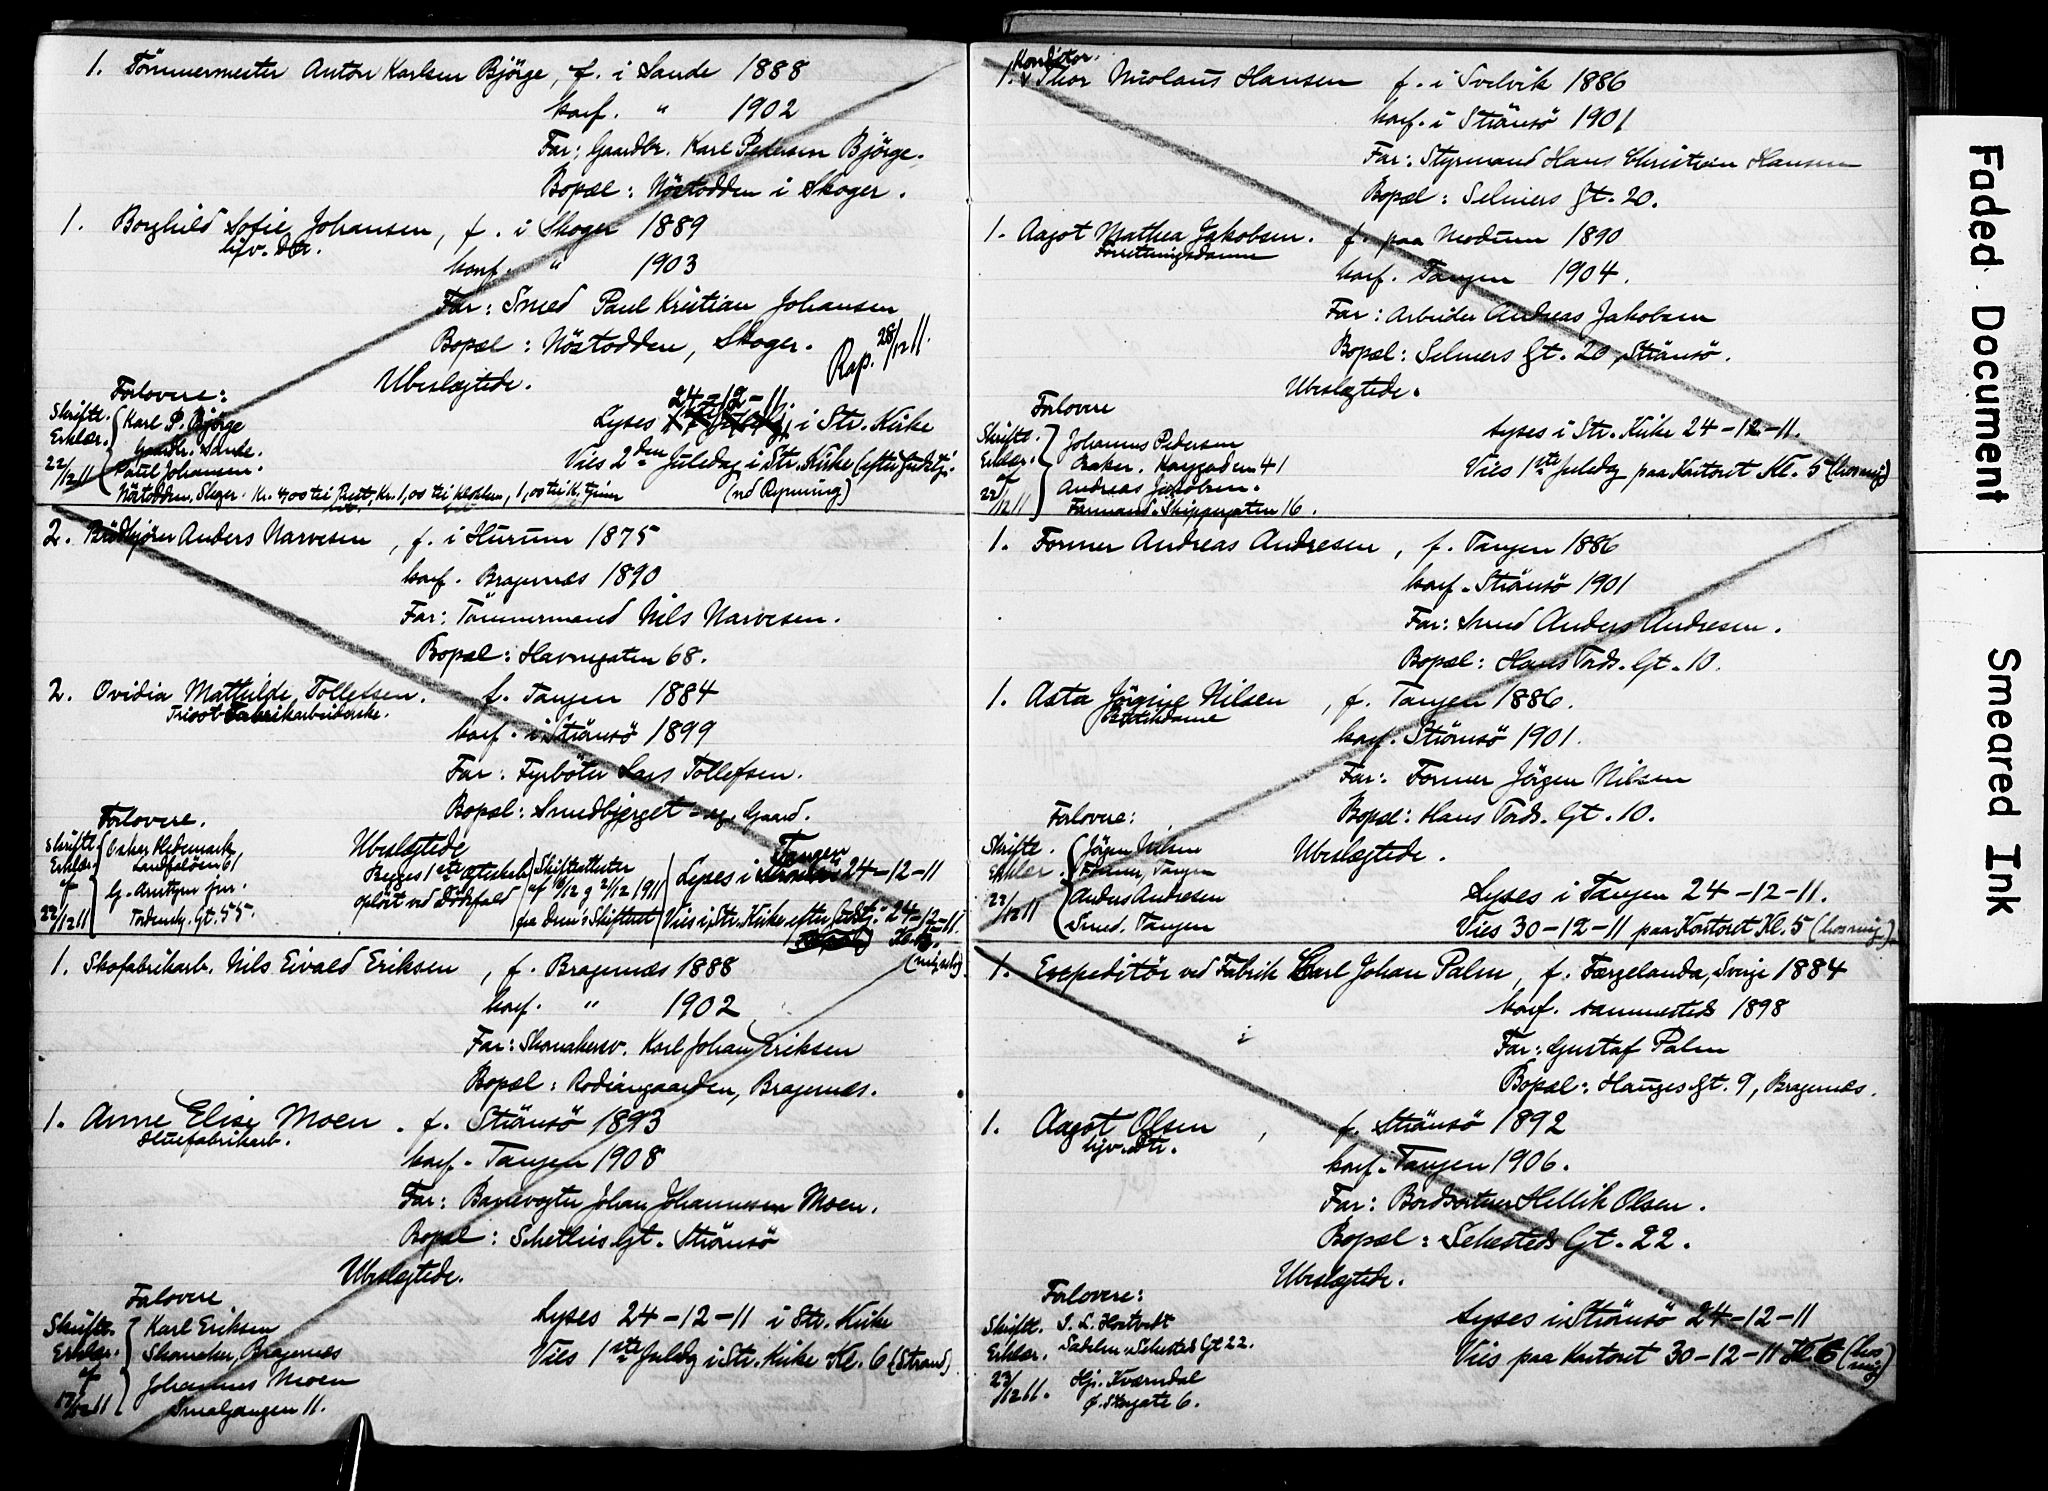 1. Tömmermester Anton Karlsen Björge, f. i Sande 1888
konf. " 1902
Far: Gaardbr. Karl Pedersen Björge.
Bopæl: Nöstodden i Skoger.
1. Borghild Sofie Johansen, f. i Skoger 1889
hjv. Dtr.
konf. " 1903
Far: Smed Paul Kristian Johansen
Bopæl: Nöstodden, Skoger.
Rap. 28/12 11.
Ubeslægtede.
Forlovere:
24-12-11.
Skriftl. Erklær. 22/12 11
Karl P. Björge
Gaardbr. Sande.
Paul Johansen.
Nöstodden, Skoger.
Lyses i Str. Kirke
Vies 2den Juledag i Str. Kirke (efter Gudstj.
2. Anders Narvesen, f. i Hurum 1875
konf. Bragernæs 1890
Far: Tömmermand Nils Narvesen.
Bopæl: Havnegaten 68.
2. Ovidia Mathilde Tollefsen. f. Tangen 1884
Tricot-Fabrikarbeiderske.
konf. i Strömsö 1899
Far: Fyrböter Lars Tollefsen.
Bopæl: Smedbjerget - eg. Gaard.
Forlovere.
Ubeslægtede
Skriftl. Erklær. af 22/12 11
Oskar Hedemark,
Landfaløen 61
Tordensk. Gt. 55.
Begges 1ste Ægteskab
opløst ved Dödsfald
Skifteattester
af 16/12 g 21/12 1911
fra Dram's Skifteret
Lyses i Tangen 24-12-11
Vies i Str. Kirke efter Gudstj. 24-12-11.
1. Skofabrikarb. Nils Eivald Eriksen, f. Bragernæs 1888
konf. " 1902
Far: Skomakersv. Karl Johan Eriksen
Bopæl: Rodiangaarden, Bragernæs.
1. Anne Elise Moen. f. Strömsö 1893
Huefabrikarb.
konf. Tangen 1908
Far: Banevogter Johan Johannessen Moen.
Bopæl: Schetlies Gt. Strömsö
Ubeslægtede.
Forlovere
Skriftl. Erklær. af 17/12 11
Karl Eriksen
Skomaker, Bragernæs
Johannes Moen
Smalgangen 11.
Lyses 24-12-11 i Str. Kirke
Vies 1ste Juledg i Str. Kirke Kl. 6 (Strand)
Konditor.
1. Thor Nicolaus Hansen f. i Svelvik 1886
konf. i Strömsö 1901
Far: Styrmand Hans Christian Hansen
Bopæl: Selmers Gt. 20.
1. Aagot Mathea Jakobsen. f. paa Modum 1890
Forretningsdame
konf. Tangen 1904.
Far: Arbeider Andreas Jakobsen
Bopæl: Selmers Gt. 20, Strömsö.
Ubeslægtede.
Forlovere
Skriftl. Erklær. af 22/12 11
Johannes Pedersen
Baker. Haugaden 41
Andreas Jakobsen.
Formand. Skippergaten 16.
Lyses i Str. Kirke 24-12-11.
Vies 1ste Juledag paa Kontoret Kl. 5 (hos mig)
1. Former Andreas Andresen, f. Tangen 1886
konf. Strömsö 1901
Far: Smed Anders Andresen.
Bopæl: Hans Tords. Gt. 10.
1. Asta Jörgine Nilsen, f. Tangen 1886.
Butikdame
konf. Strömsö 1901.
Far: Former Jörgen Nilsen
Bopæl: Hans Tords. Gt. 10.
Forlovere:
Ubeslægtede.
Skriftl. Erklær. 22/12 11
Jörgen Nilsen
Former, Tangen
Anders Andresen
Smed. Tangen
Lyses i Tangen 24-12-11.
Vies 30-12-11 paa Kontoret Kl. 5 (hos mig.)
1. Expeditör ved Fabrik Carl Johan Palm, f. Færgelanda, Sverige 1884
konf. sammesteds 1898
Far: Gustaf Palm
Bopæl: Hauges Gt. 9, Bragernæs.
1. Aagot Olsen, f. Strömsö 1892
hjv. Dtr.
konf. Tangen 1906.
Far: Bordsorterer Hellik Olsen.
Bopæl: Sehesteds Gt. 22.
Ubeslægtede.
Forlovere:
Skriftl. Erklær. 23/12 11.
Sehesteds Gt 22.
Hj. Kværndal
Ø. Storgate 6.
Lyses i Strömsö 24-12-11
Vies paa Kontoret 30-12-11 Kl. 6 (hos mig)
Faded Document
Smeared Ink